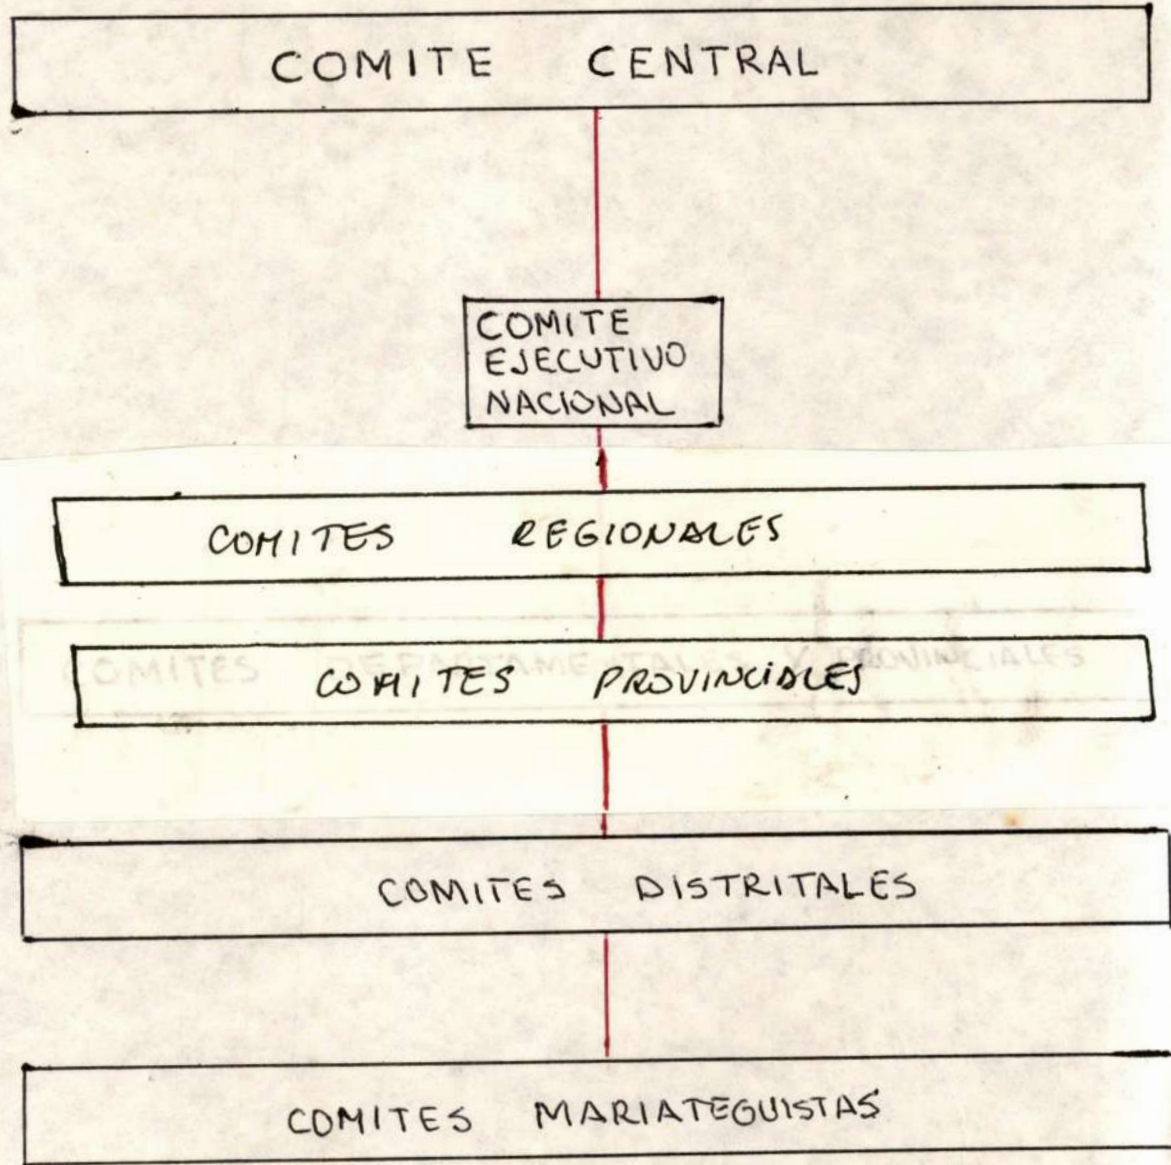 COMITE CENTRAL
COMITE
EJECUTIVO
NACIONAL
COMITES REGIONALES
COMITES DEPARTAMENTALES Y PROVINCIALES
COMITES PROVINCIALES
COMITES DISTRITALES
COMITES MARIATEGUISTAS